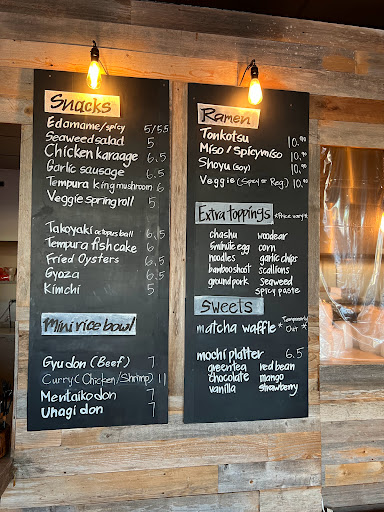 Snacks
Edamame/spicy 5/5.5
Seaweed salad 5
Chicken karaage 6.5
Garlic sausage 6.5
Tempura king mushroom 6
Veggie spring roll 5
Takoyaki octopus ball 6.5
Tempura fish cake 6
Fried Oysters 6.5
Gyoza 6.5
Kimchi 5
Mini rice bowl
Gyudon (Beef) 7
Curry (Chicken/Shrimp) 11
Mentaiko don 7
Unagi don 7
Ramen
Tonkotsu 10.90
Miso / Spicy miso 10.90
Shoyu (soy) 10.90
Veggie (Spicy or Reg) 10.90
Extra toppings *Price vary*
chashu woodear
5minute egg corn
noodles garlic chips
bamboo shoot scallions
ground pork seaweed
spicy paste
Sweets
matcha waffle * Temporarily Out *
mochi platter 6.5
green tea red bean
chocolate mango
vanilla strawberry